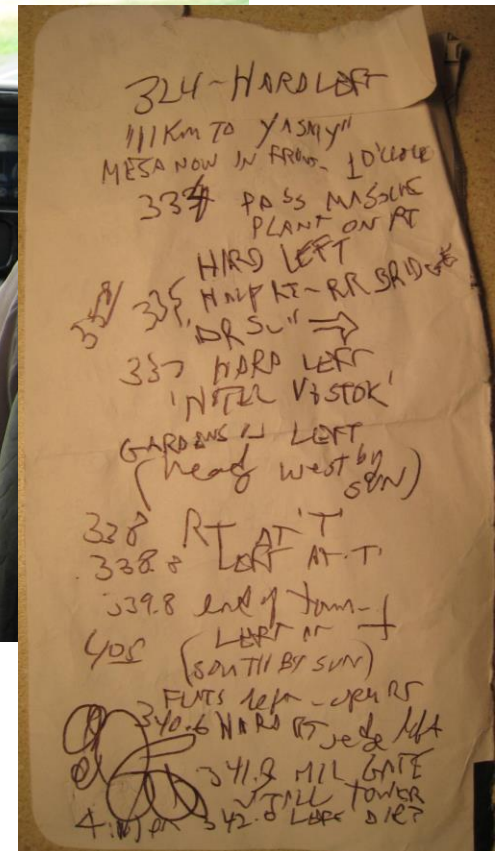 324-HARD LEFT
"11 Km TO YASNY"
MESA NOW IN FRONT - 10'CLOCK
334 PASS MASSIVE
PLANT ON RT
HARD LEFT
335 HALF RT-RR BRIDGE
"ORSU" ⇒
337 HARD LEFT
'HOTEL VOSTOK'
GARDENS IN LEFT
(head west by
SUN)
338 RT AT 'T'
338.8 LEFT AT 'T'
339.8 end of town -
405 LEFT AT
(SOUTH BY SUN)
FLATS left - open RT
340.6 HARD RT
341.9 MIL GATE
TALL TOWER
342.0 LEFT DIR?